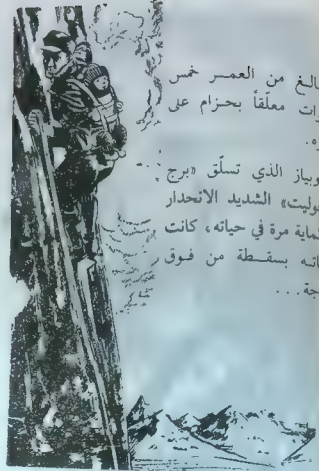 ـالغ من العمر خمس
رات معلّقاً بحزام على
ره.
وبياز الذي تسلّق «برج
وليت» الشديد الانحدار
ـماية مرة في حياته، كانت
ـاته بسقطة من فوق
جة...